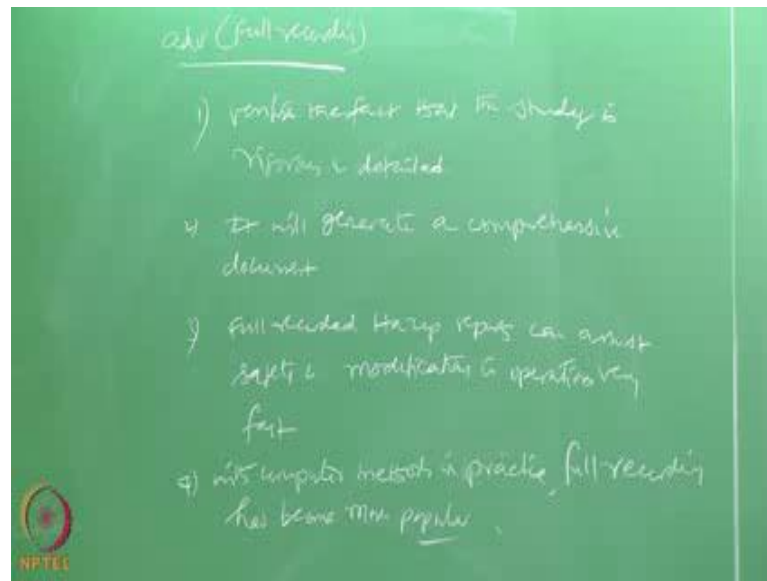 adv (full-recording)
1) verifies the fact that the study is
rigorous & detailed
2) It will generate a comprehensive
document
3) full recorded Hazop report can assist
safety & modification to operation very
fast
4) with computer methods in practice, full-recording
has become more popular.
NPTEL